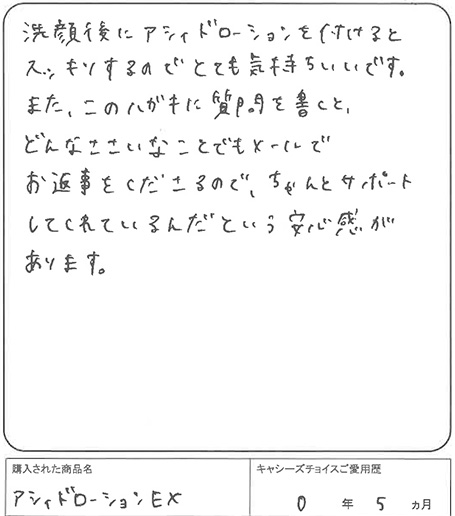 洗顔後にアシィドローションを付けると
スッキリするのでとても気持ちいいです。
また、このハガキに質問を書くと、
どんなささいなことでもメールで
お返事をくださるので、ちゃんとサポート
してくれているんだという安心感が
あります。
購入された商品名
アシィドローションEX
キャシーズチョイスご愛用歴
0 年 5 ヵ月